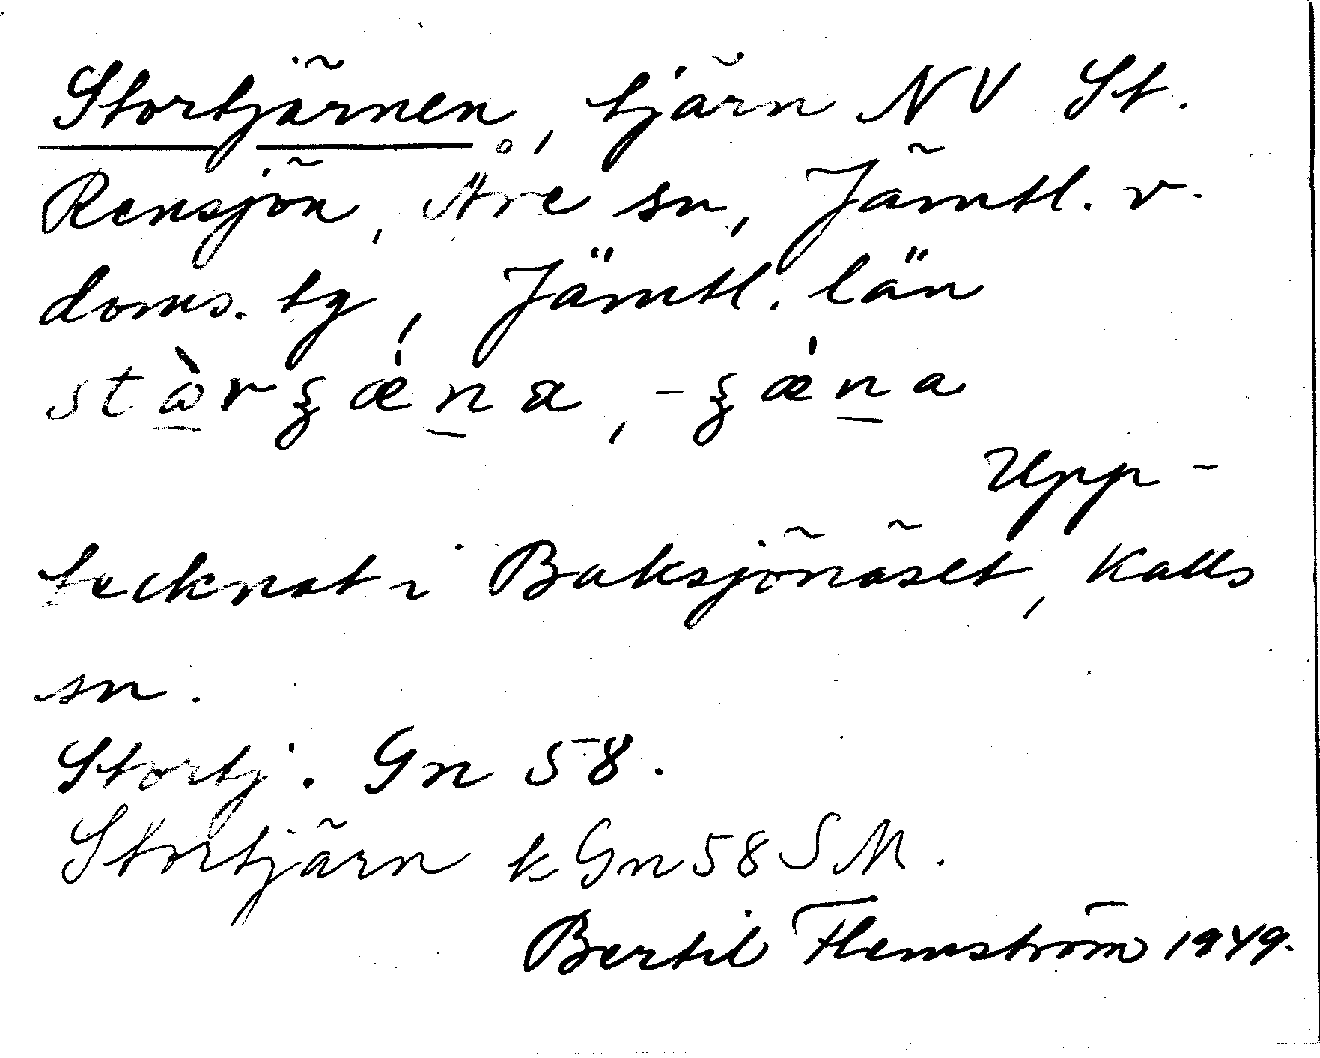 Stortjärnen, tjärn NV St.
Rensjön, Åre sn, Jämtl. v.
doms. tg, Jämtl. län
stɷ̀rʒǽna, -ʒǽna
Upp-
tecknat i Baksjönäset, Kalls
sn.
Stortj. Gn 58.
Stortjärn k Gn 58 SM.
Bertil Flemström 1949.